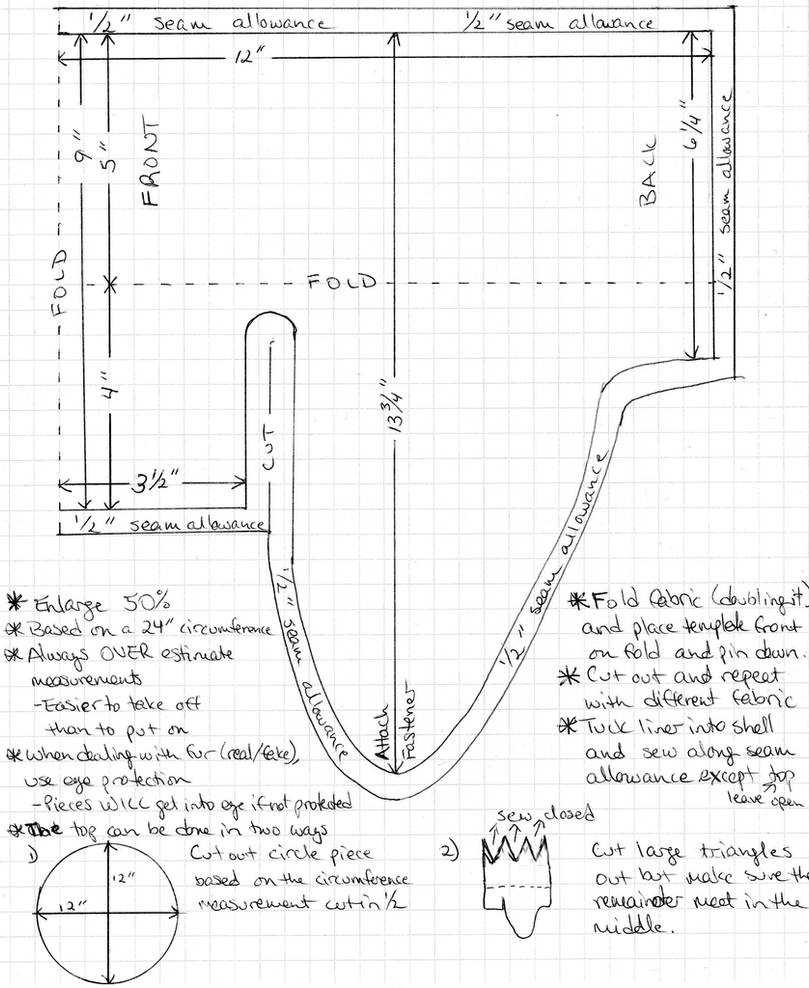 1/2" seam allowance
1/2" seam allowance
12"
9"
5"
FRONT
BACK
6 1/4"
1/2" seam allowance
FOLD
FOLD
4"
13 3/4"
CUT
3 1/2"
1/2" seam allowance
1/2" seam allowance
1/2" seam allowance
Attach
Fastener
* Enlarge 50%
* Based on a 24" circumference
* Always OVER estimate
measurements
- Easier to take off
than to put on
* When dealing with fur (real/fake),
use eye protection
- Pieces WILL get into eye if not protected
* The top can be done in two ways
* Fold fabric (doubling it)
and place template front
on fold and pin down.
* Cut out and repeat
with different fabric
* Tuck liner into shell
and sew along seam
allowance except top
leave open
1)
12"
12"
Cut out circle piece
based on the circumference
measurement cut in 1/2
2)
sew closed
Cut large triangles
out but make sure the
remainder meet in the
middle.